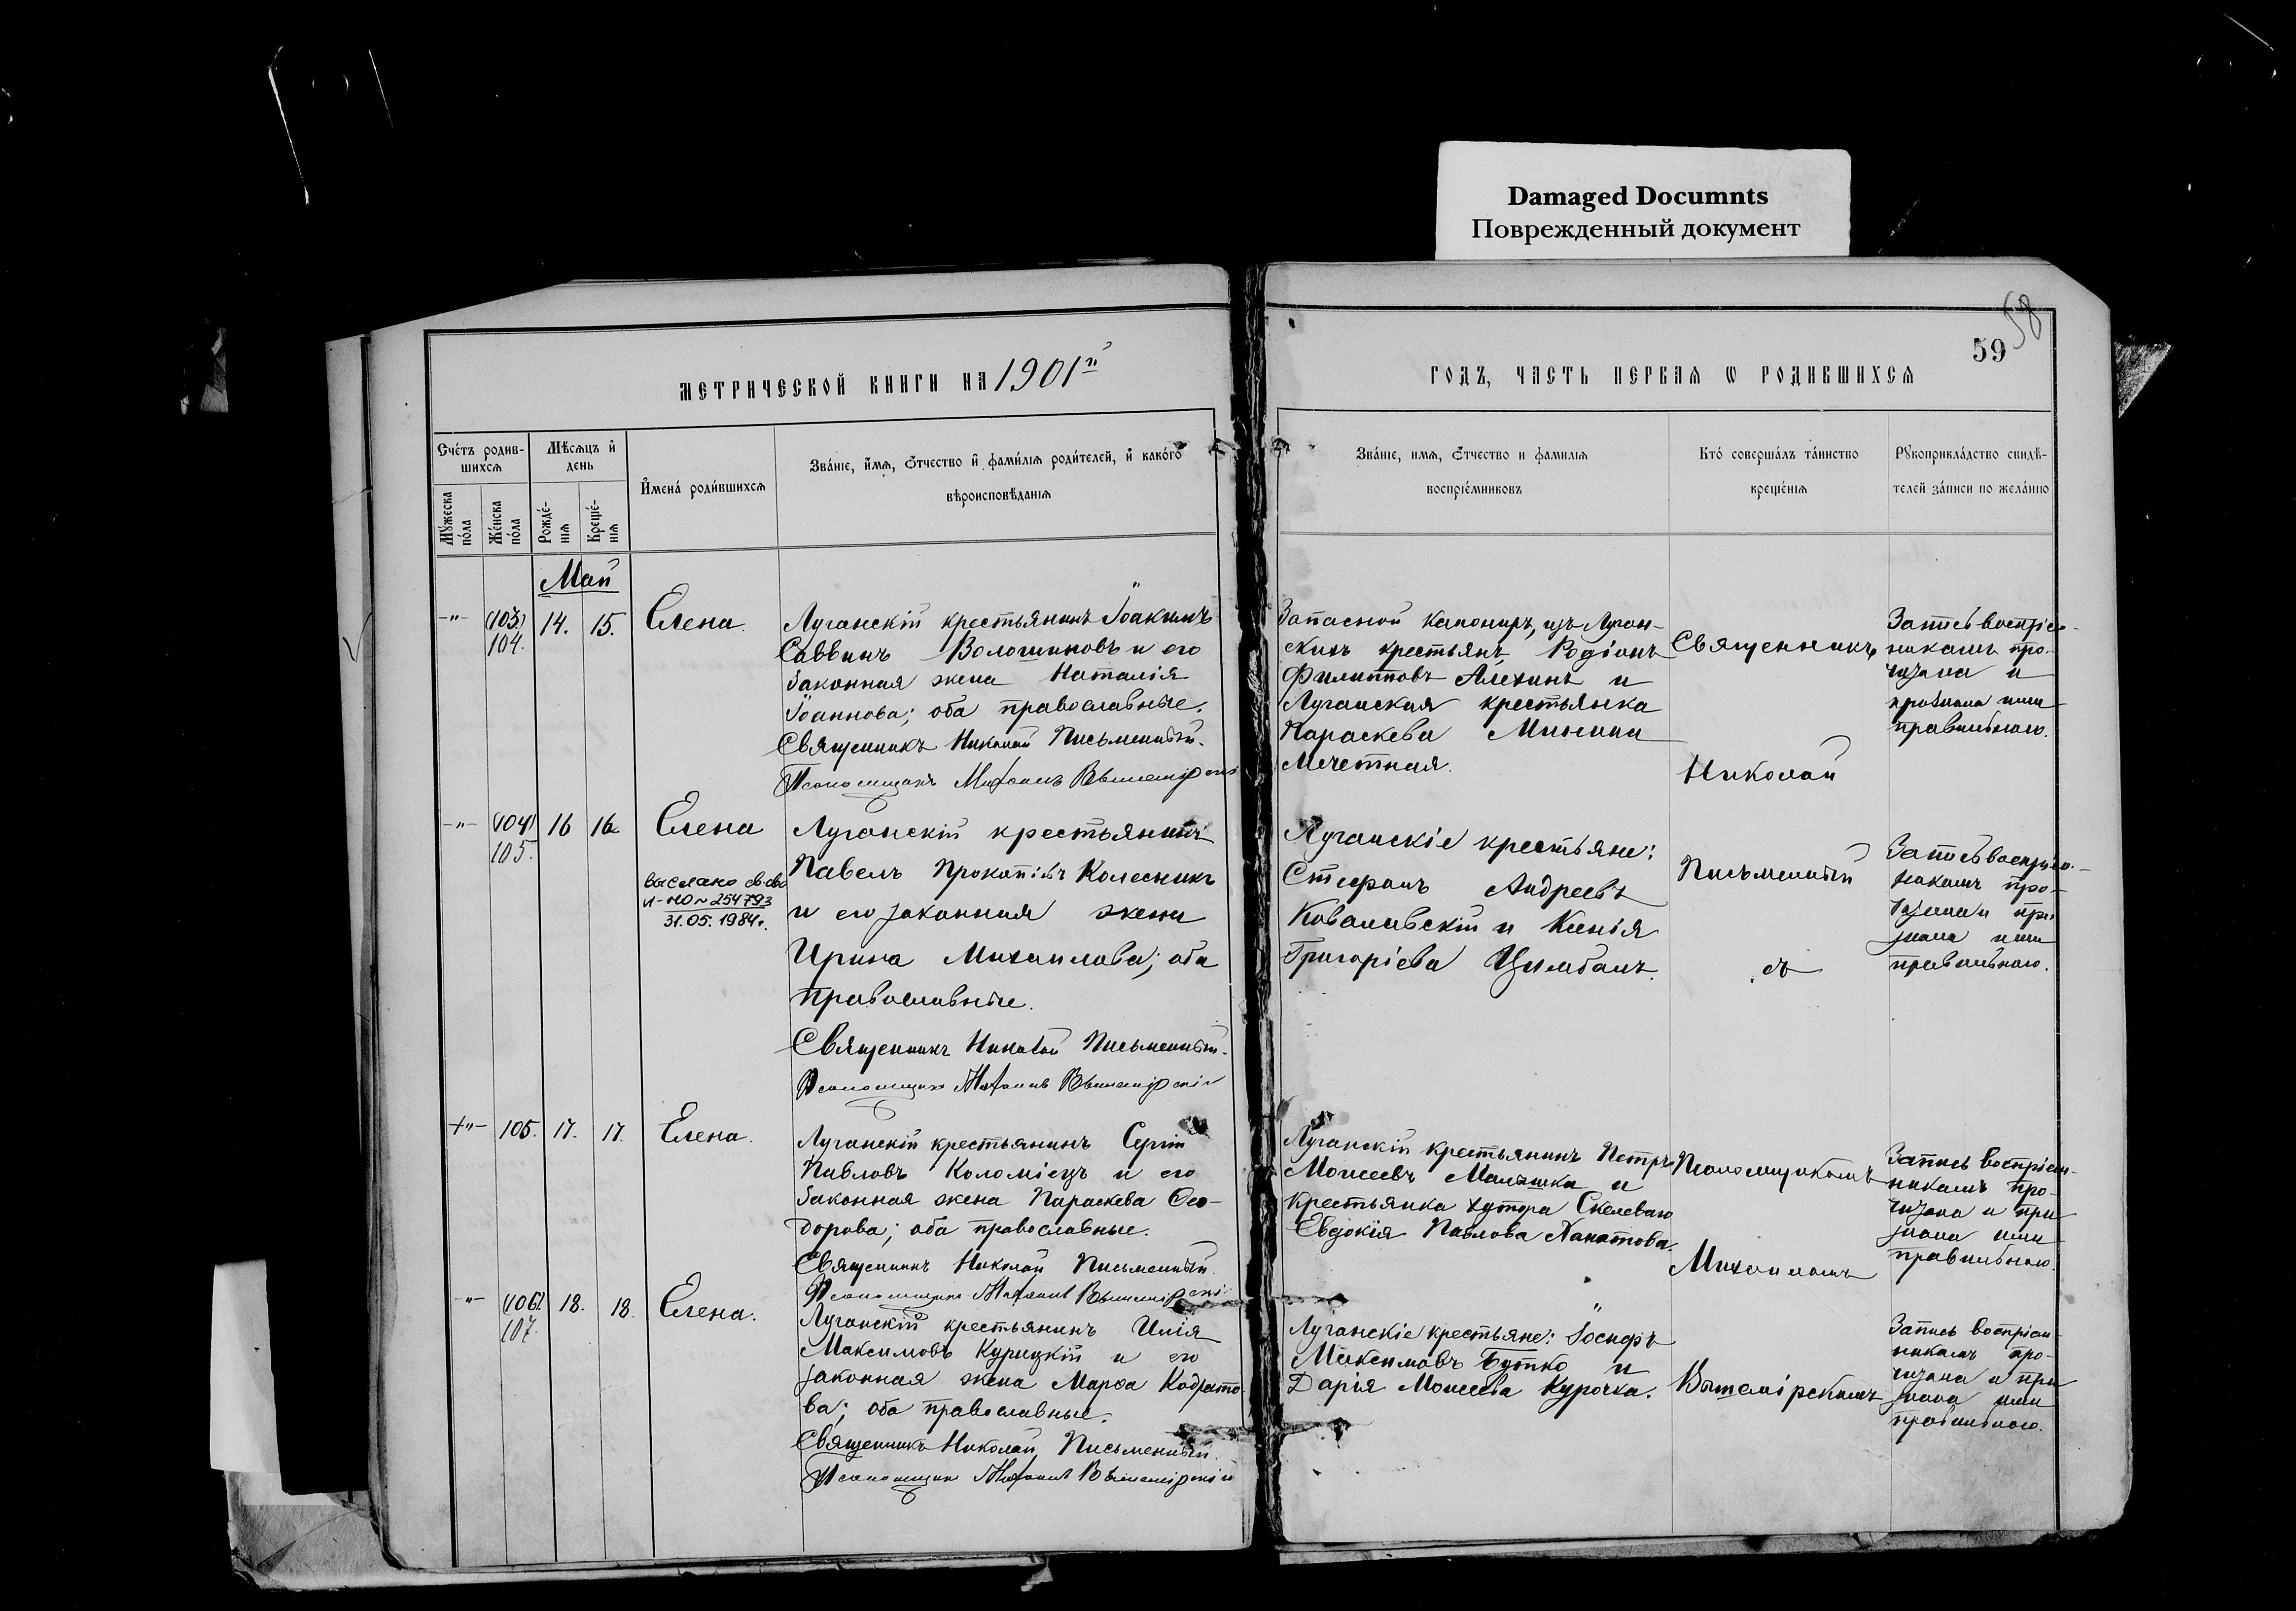 Damaged Documnts
Поврежденный документ
58
59
МЕТРИЧЕСКОЙ КНИГИ НА 1901й
ГОДЪ, ЧАСТЬ ПЕРВАЯ Ѡ РОДИВШИХСЯ
Счетъ родив-
шихся
Мѣсяцъ и
день
Мужеска
пола
Женска
пола
Рожде-
нія
Креще-
нія
Имена родившихся
Званіе, имя, отчество и фамилія родителей, и какого
вѣроисповѣданія
Званіе, имя, отчество и фамилія
воспріемниковъ
Кто совершалъ таинство
крещенія
Рукоприкладство свидѣ-
телей записи по желанію
Май
-"- (103) 104. 14. 15. Елена.
Луганскій крестьянинъ Іоакимъ
Саввинъ Волошиновъ и его
законная жена Наталія
Іоаннова; оба православные.
Священникъ Николай Письменный.
Псаломщикъ Михаилъ Вышемірскій
Запасной канониръ, изъ Луган-
скихъ крестьянъ, Родіонъ
Филипповъ Алехинъ и
Луганская крестьянка
Параскева Минина
Мечетная.
Священникъ
Николай
Запись воспріем-
никамъ про-
читана и
признана ими
правильною.
-"- (104) 105. 16 16. Елена
выслано св-во
31.05.1984г.
Луганскій крестьянинъ
Павелъ Прокопіевъ Колесникъ
и его законная жена
Ирина Михаилова; оба
православные.
Священникъ Николай Письменный.
Псаломщикъ Михаилъ Вышемірскій
Луганскіе крестьяне:
Стефанъ Андреевъ
Ковалевскій и Ксенія
Григоріева Цимбалъ.
Письменный
съ
Запись воспріем-
никамъ про-
читана и при-
знана ими
правильною.
+"- 105. 17. 17. Елена.
Луганскій крестьянинъ Сергій
Павловъ Коломіецъ и его
законная жена Параскева Ѳео-
дорова; оба православные.
Священникъ Николай Письменный.
Псаломщикъ Михаилъ Вышемірскій
Луганскій крестьянинъ Петръ
Моисеевъ Малашка и
крестьянка хутора Скелеваго
Евдокія Павлова Ханатова.
Псаломщикомъ
Михаиломъ
Запись воспріем-
никамъ про-
читана и при
знана ими
правильною.
-"- (106) 107. 18. 18. Елена.
Луганскій крестьянинъ Илія
Максимовъ Курицкій и его
законная жена Марѳа Кодрато-
ва; оба православные.
Священникъ Николай Письменный.
Псаломщикъ Михаилъ Вышемірскій
Луганскіе крестьяне: Іосифъ
Максимовъ Бутко и
Дарія Моисеева Курочка.
Вышемірскимъ
Запись воспріем-
никамъ про-
читана и при
знана ими
правильною.